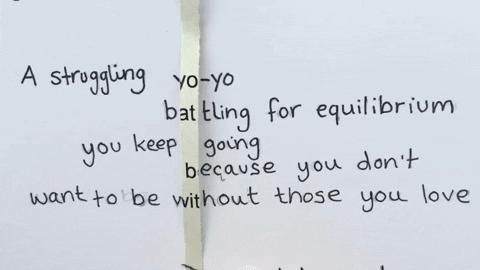 A struggling yo-yo
battling for equilibrium
you keep going
because you don't
want to be without those you love